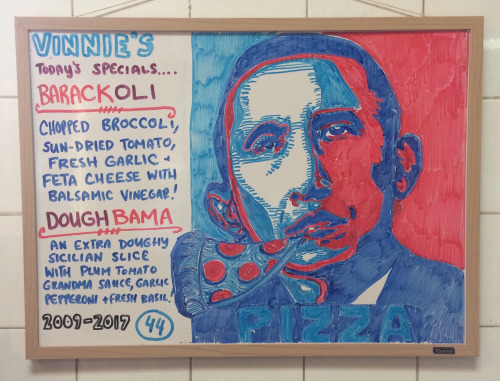 VINNIE'S
TODAY'S SPECIALS....
BARACKOLI
CHOPPED BROCCOLI,
SUN-DRIED TOMATO,
FRESH GARLIC +
FETA CHEESE WITH
BALSAMIC VINEGAR!
DOUGHBAMA
AN EXTRA DOUGHY
SICILIAN SLICE
WITH PLUM TOMATO
GRANDMA SAUCE, GARLIC
PEPPERONI + FRESH BASIL!
2009-2017 44
PIZZA